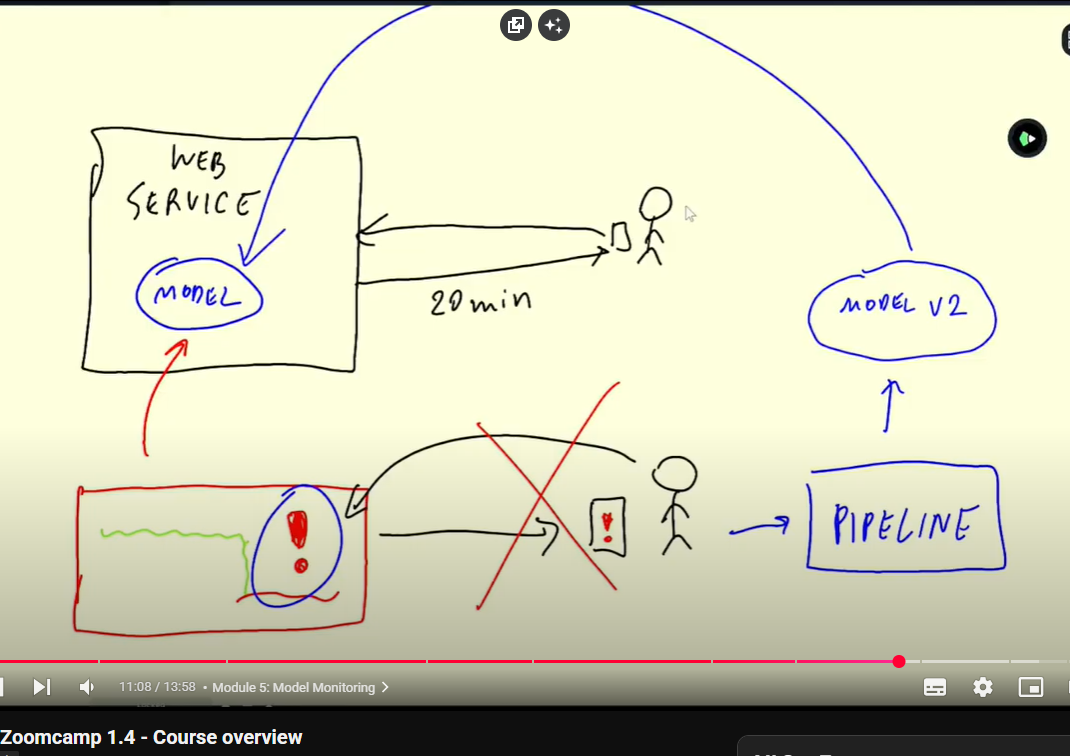 WEB
SERVICE
MODEL
20min
MODEL V2
!
!
PIPELINE
11:08 / 13:58 • Module 5: Model Monitoring >
Zoomcamp 1.4 - Course overview